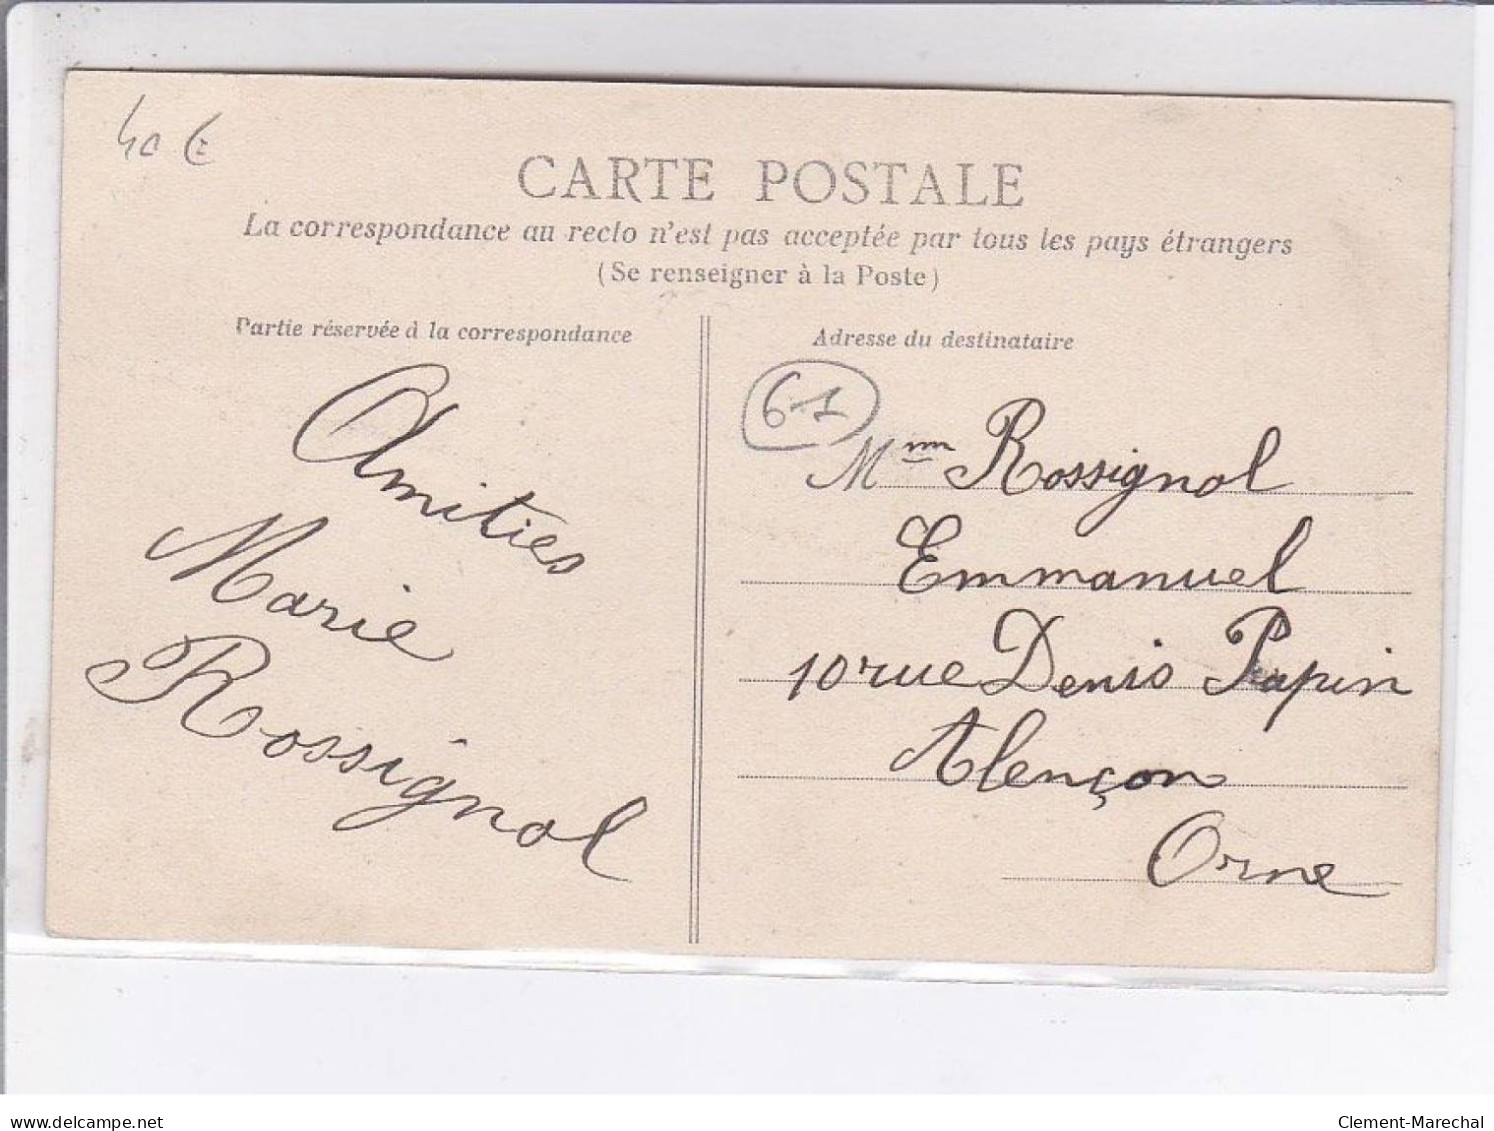 40 €
CARTE POSTALE
La correspondance au recto n'est pas acceptée par tous les pays étrangers
(Se renseigner à la Poste)
Partie réservée à la correspondance
Adresse du destinataire
61
Amitiés
Marie
Rossignol
Mme Rossignol
Emmanuel
10 rue Denis Papin
Alençon
Orne
delcampe.net
Clement-Marechal